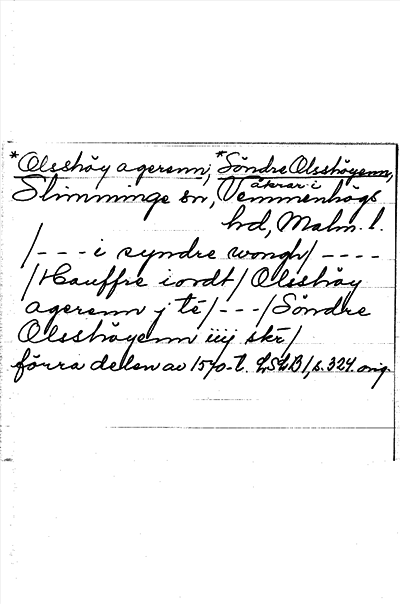 *Olsshøy agerenn, *Söndre Olsshøyenn,
åkrar i
Slimminge sn, Vemmenhögs
hd, Malm. l.
/- - - i syndre wongh/ - - - -
/Hauffre iordt/ Olsshøy
agerenn j té/- - -/Söndre
Olsshøyenn iiij skr/
förra delen av 1570-t. LSLB 1, s. 324. orig.